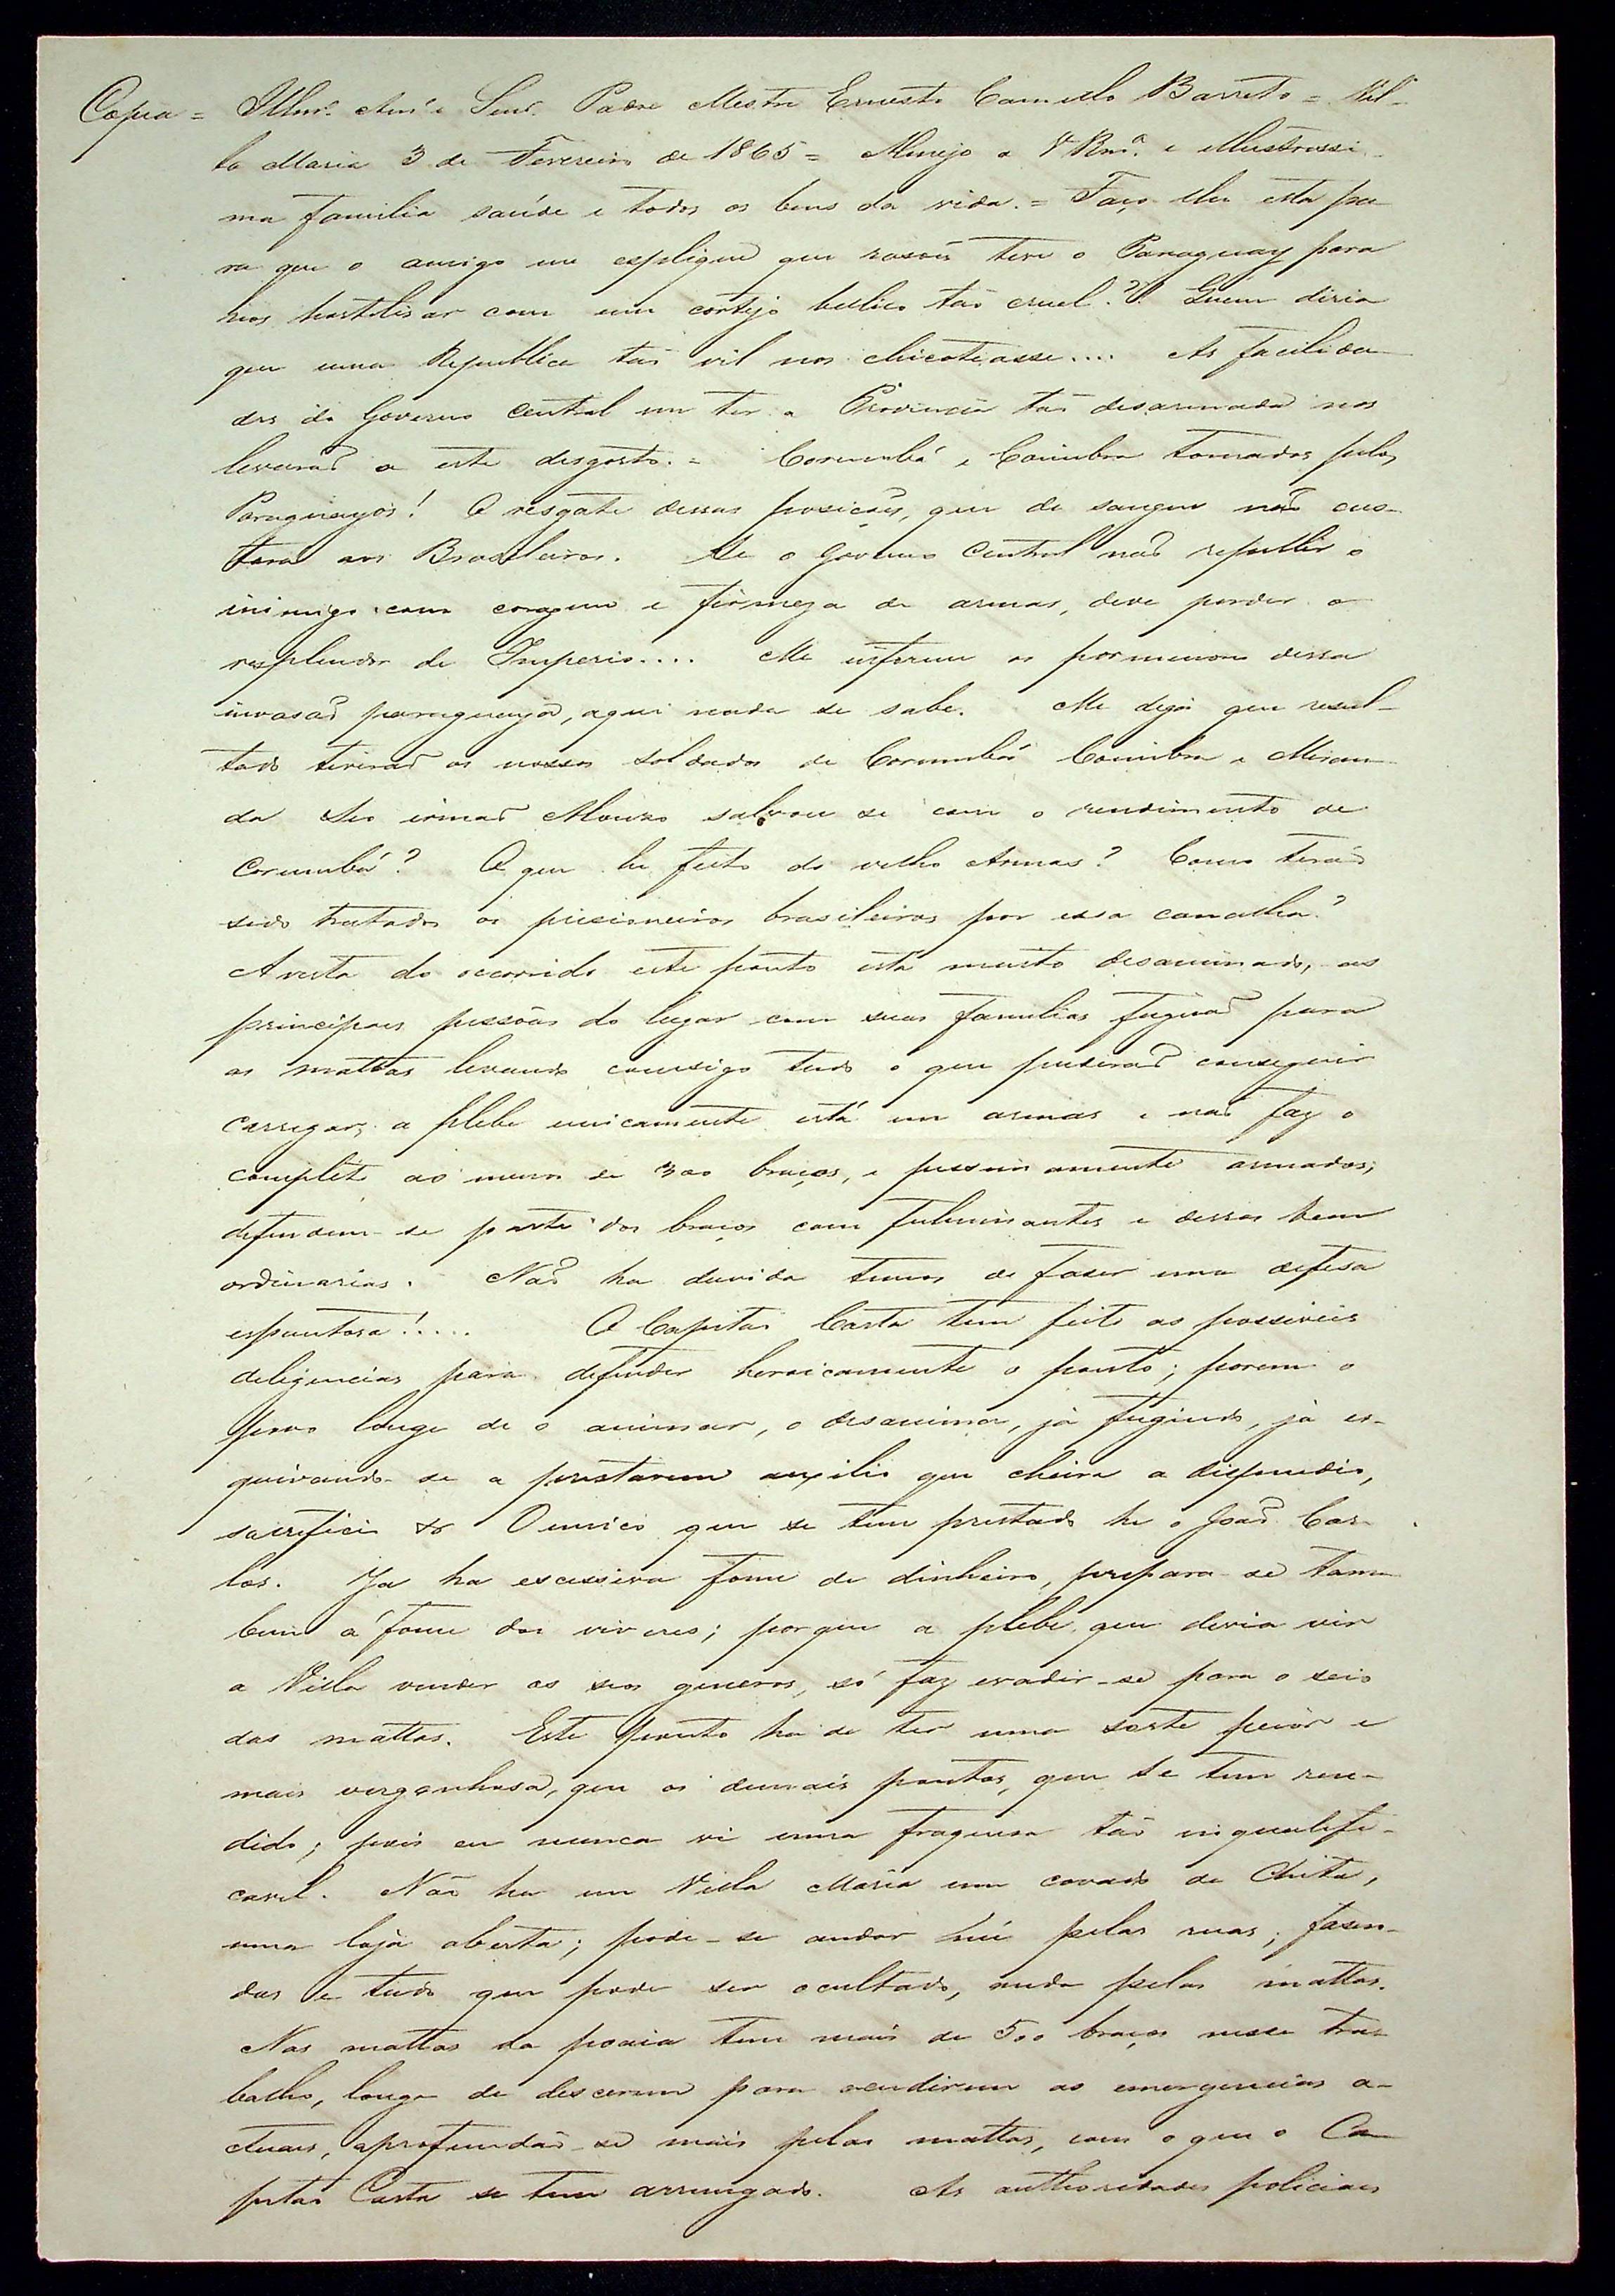 Copia = Illmo. Amo. e Senr. Padre Mestre Ernesto Camillo Barreto = Vil-
la Maria 3 de Fevereiro de 1865 = Almejo a Va. Rma. e Illustrissi-
ma familia saúde e todos os bens da vida. = Faço lhe esta pa-
ra que o amigo me explique que rasões teve o Paraguay para
nos hostilisar com um cortejo bellico tão cruel?! Quem diria
que uma Republica tão vil nos chicoteasse.... As facilida-
des do Governo Central em ter a Provincia tão desarmada nos
levarão a este desgosto. = Corumbá e Coimbra tomadas pelos
Paraguayos! O resgate dessas posições, que de sangue não cus-
tará aos Brasileiros. Se o Governo Central não repellir o
inimigo com coragem e firmeza de armas, deve perder o
resplendor de Imperio.... Me informe os pormenores dessa
invasão paraguaya, aqui nada se sabe. Me diga que resul-
tado tiverão os nossos soldados de Corumbá Coimbra e Miran-
da Seo irmão salvou se com o rendimento de
Corumbá? O que he feito do velho Armas? Como terão
sido tratados os prisioneiros brasileiros por essa canalha?
A vista do occorrido este ponto está muito desanimado, as
principaes pessôas do lugar com suas familias fugirão para
as mattas levando comsigo tudo o que puserão conseguir
carregar; a plebe unicamente está em armas e não faz o
completo ao menos de 300 braços, e pessimamente armados;
defendem-se parte dos braços com fulminantes e dessas bem
ordinarias. Não ha duvida temos de faser uma defesa
espantosa!..... O Capitão Costa tem feito as possiveis
deligencias para defender heroicamente o ponto; porem o
povo longe de o animar, o desanima, já fugindo, já es-
quivando-se a prestarem auxilio que cheira a dispendio,
sacrificio &. O unico que se tem prestado he o João Car-
los. Ja ha excessiva fome de dinheiro, prepara-se tam-
bem á fome dos viveres; porque a plebe que devia vir
a Villa vender os seos generos, só faz evadir-se para o seio
das mattas. Este ponto ha de ter uma sorte peior e
mais vergonhosa, que os demais pontos, que se tem ren-
dido; pois eu nunca vi uma fraquesa tão inqualifi-
cavel. Não ha em Villa Maria um covado de Chita,
uma loja aberta; pode-se andar nú pelas ruas; fasen-
das e tudo que pode ser occultado, anda pelas mattas.
Nas mattas da poaia tem mais de 500 braços nesse tra-
balho, longe de descerem para acudirem as emergencias a-
ctuaes, aprofundão-se mais pelas mattas, com o que o Ca-
pitão Costa se tem arrengado. As authoridades policiaes